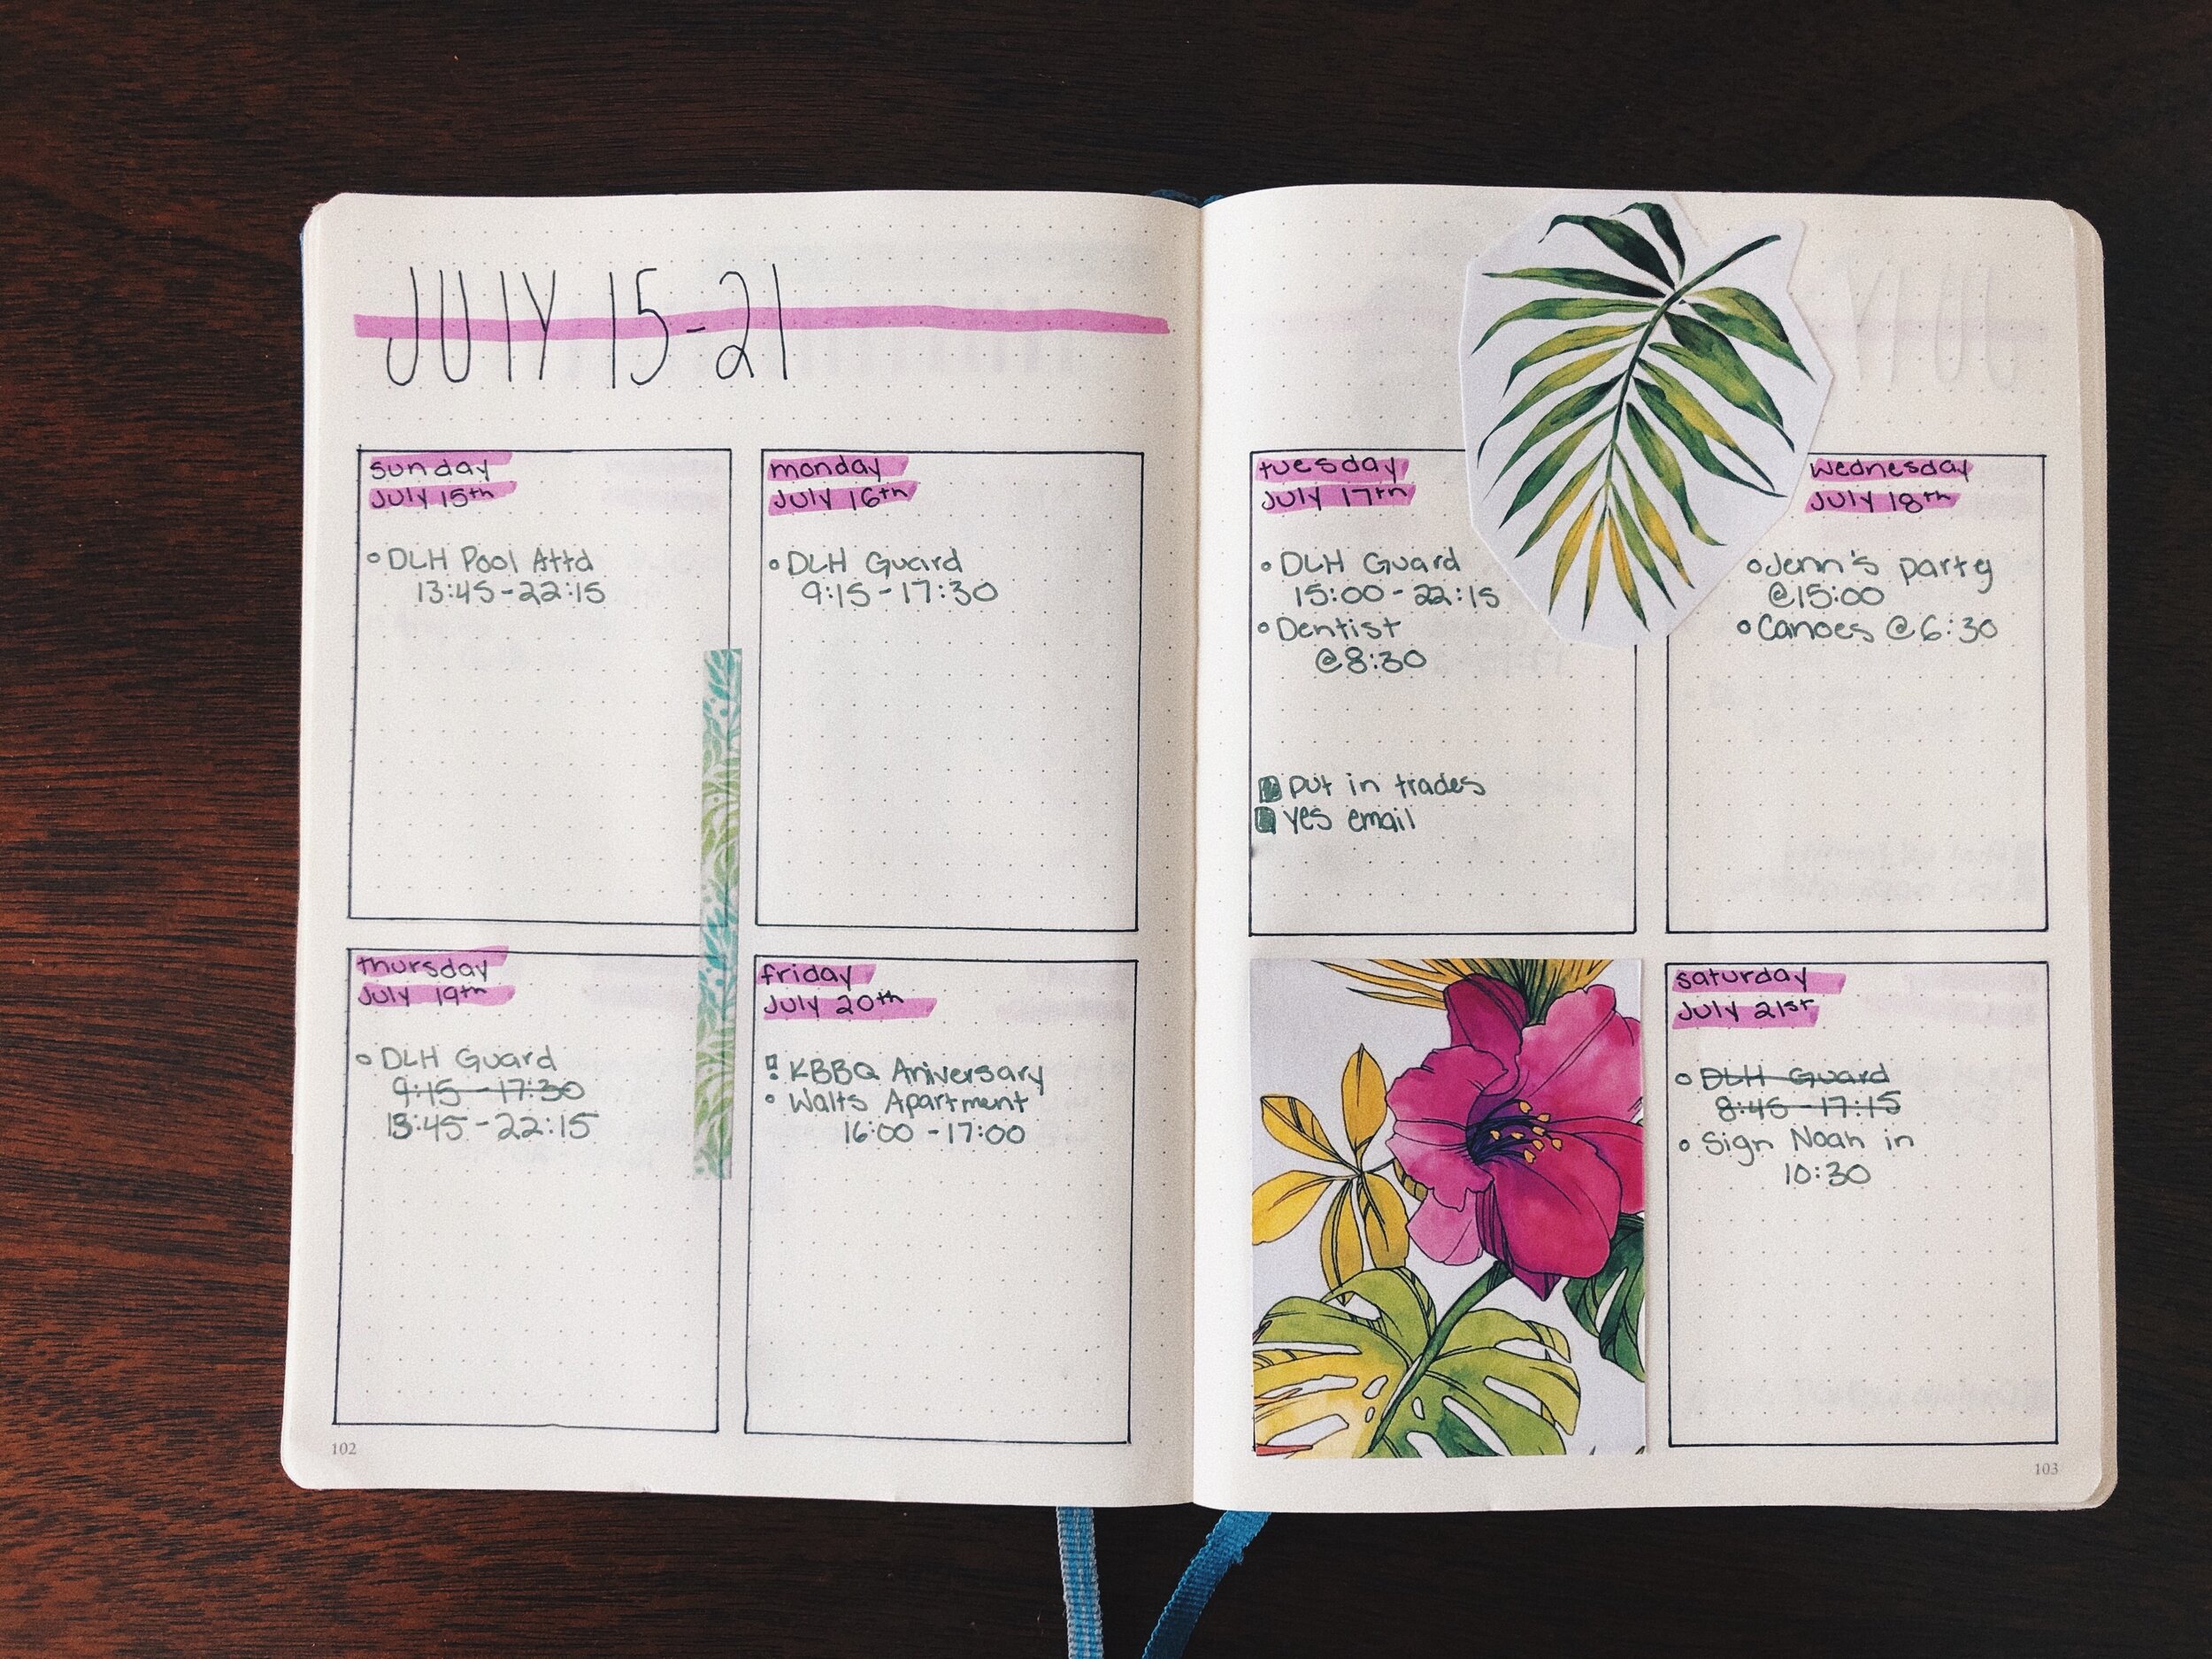 JUlY 15-21
sunday
July 15th
DLH Pool Attd
13:45-22:15
monday
July 16th
DLH Guard
9:15-17:30
thursday
July 19th
DLH Guard
9:15-17:30
13:45-22:15
friday
July 20th
KBBQ Aniversary
Walts Apartment
16:00-17:00
102
tuesday
July 17th
DLH Guard
15:00-22:15
Dentist
@8:30
put in trades
yes email
wednesday
July 18th
Jenn's party
@15:00
Canoes @6:30
saturday
July 21st
DLH Guard
8:45-17:15
Sign Noah in
10:30
103